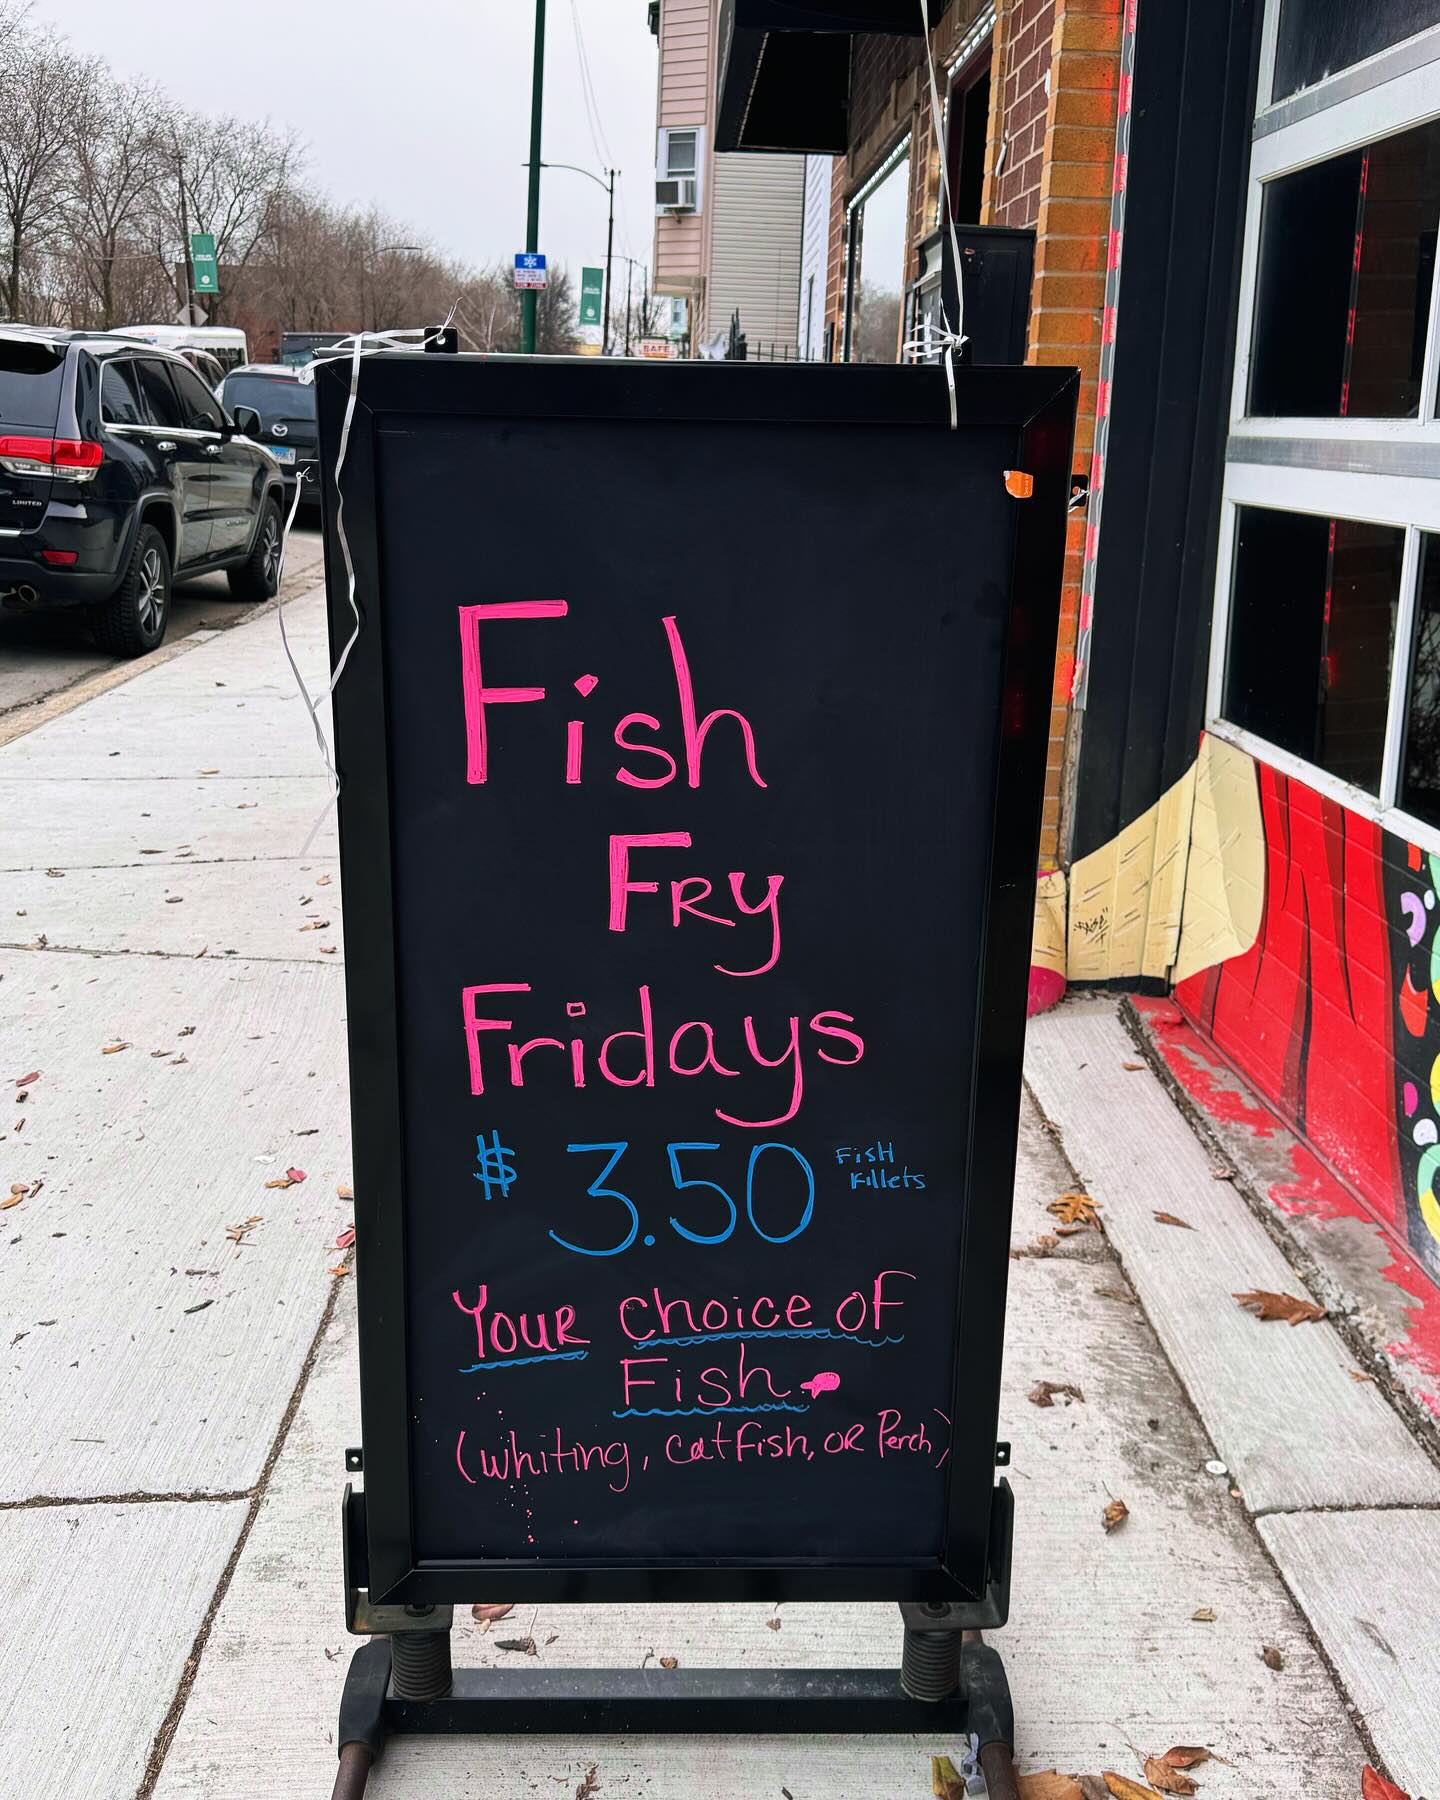 Fish
FRY
Fridays
$ 3.50 FisH
Fillets
YOUR choice oF
Fish
(whiting, catfish, OR Perch)
LIMITED
SAFE